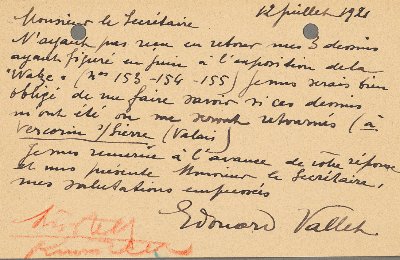 Monsieur le Secrétaire 12 juillet 1921
N'ayant pas reçu en retour mes 3 dessins
ayant figuré en juin à l'exposition de la
"Walze" (nos 153-154-155) je vous serais bien
obligé de me faire savoir si ces dessins
m'ont été ou me seront retournés (à
Vercorin s/Sierre (Valais)
Je vous remercie à l'avance de votre réponse
et vous présente Monsieur le Secrétaire,
mes salutations empressées
Edouard Vallet.